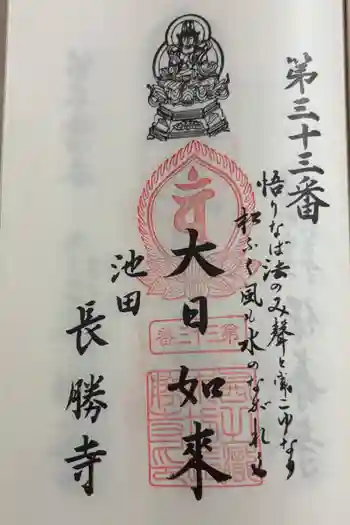 第三十三番
悟りなば法のみ聲と聞こゆなり
松ふく風も水のながれも
大日如来
第三十三番
池田
長勝寺